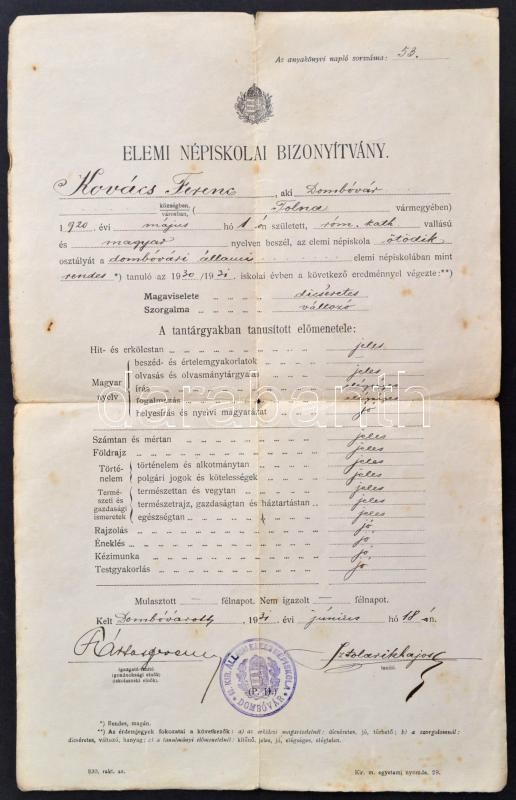 Az anyakönyvi napló sorszáma: 53.
ELEMI NÉPISKOLAI BIZONYÍTVÁNY.
Kovács Ferenc, aki Dombóvár
községben, városban, ( Tolna vármegyében)
1920. évi május hó 1 én született, róm. kath. vallású
és magyar nyelven beszél, az elemi népiskola ötödik
osztályát a dombóvári állami elemi népiskolában mint
rendes *) tanuló az 1930/1931. iskolai évben a következő eredménnyel végezte:**)
Magaviselete dicséretes
Szorgalma változó
A tantárgyakban tanusított előmenetele:
Hit- és erkölcstan jeles
Magyar nyelv
beszéd- és értelemgyakorlatok
olvasás és olvasmánytárgyalás jeles
írás
fogalmazás
helyesírás és nyelvi magyarázat jó
Számtan és mértan jeles
Földrajz jeles
Törté-
nelem
történelem és alkotmánytan jeles
polgári jogok és kötelességek jeles
Termé-
szeti és
gazdasági
ismeretek
természettan és vegytan jeles
természetrajz, gazdaságtan és háztartástan jeles
egészségtan jeles
Rajzolás jó
Éneklés jó
Kézimunka jó
Testgyakorlás jó
Mulasztott — félnapot. Nem igazolt — félnapot.
Kelt Dombóvárott, 1931. évi június hó 18-án.
igazgató-tanító
(gondnoksági elnök)
(iskolaszéki elnök).
tanító.
M. KIR. ÁLL. ELEMI NÉPISKOLA
DOMBÓVÁR
(P. H.)
*) Rendes, magán.
**) Az érdemjegyek fokozatai a következők: a) az erkölcsi magaviseletnél: dicséretes, jó, tűrhető; b) a szorgalomnál:
dicséretes, változó, hanyag; c) a tanulmányi előmenetelnél: kitűnő, jeles, jó, elégséges, elégtelen.
930. rakt. sz.
Kir. m. egyetemi nyomda. 29.
darabanth.com